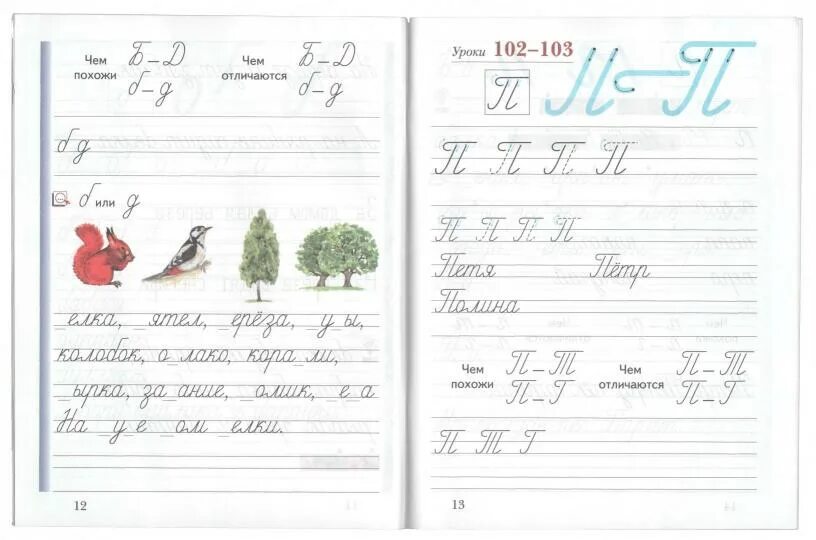 Чем похожи Б – Д б – д Чем отличаются Б – Д б – д
б д
б или д
_елка, _ятел, _ерёза, _у_ы,
колобок, о_лако, кора_ли,
_ырка, за_ание, _омик, _е_а
На _у_е _ом _елки.
12
Уроки 102–103
П П – П
П П П П
П П П П
Петя Пётр
Полина
Чем похожи П – Т П – Г Чем отличаются П – Т П – Г
П Т Г
13